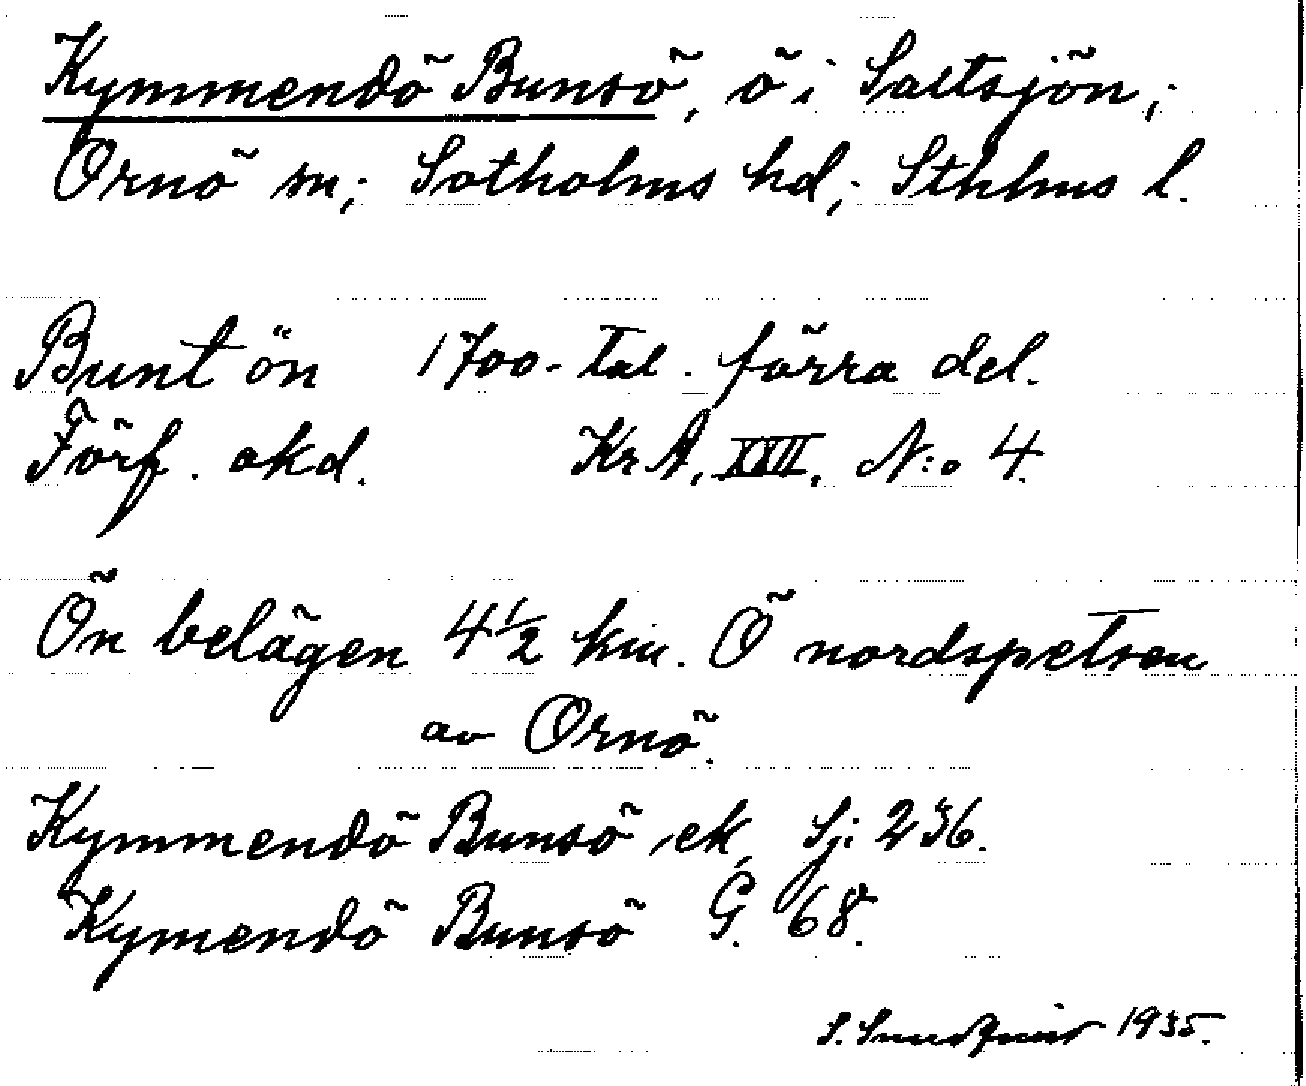 Kymmendö Bunsö, ö i Saltsjön,
Ornö sn; Sotholms hd; Sthlms l.
Bunt ön 1700-tal. förra del.
Förf. okd. Kr A, XXVII, N:o 4.
Ön belägen 4½ km. Ö nordspetsen
av Ornö.
Kymmendö Bunsö ek. Sj: 236.
Kymendö Bunsö G. 68.
S. 1935.